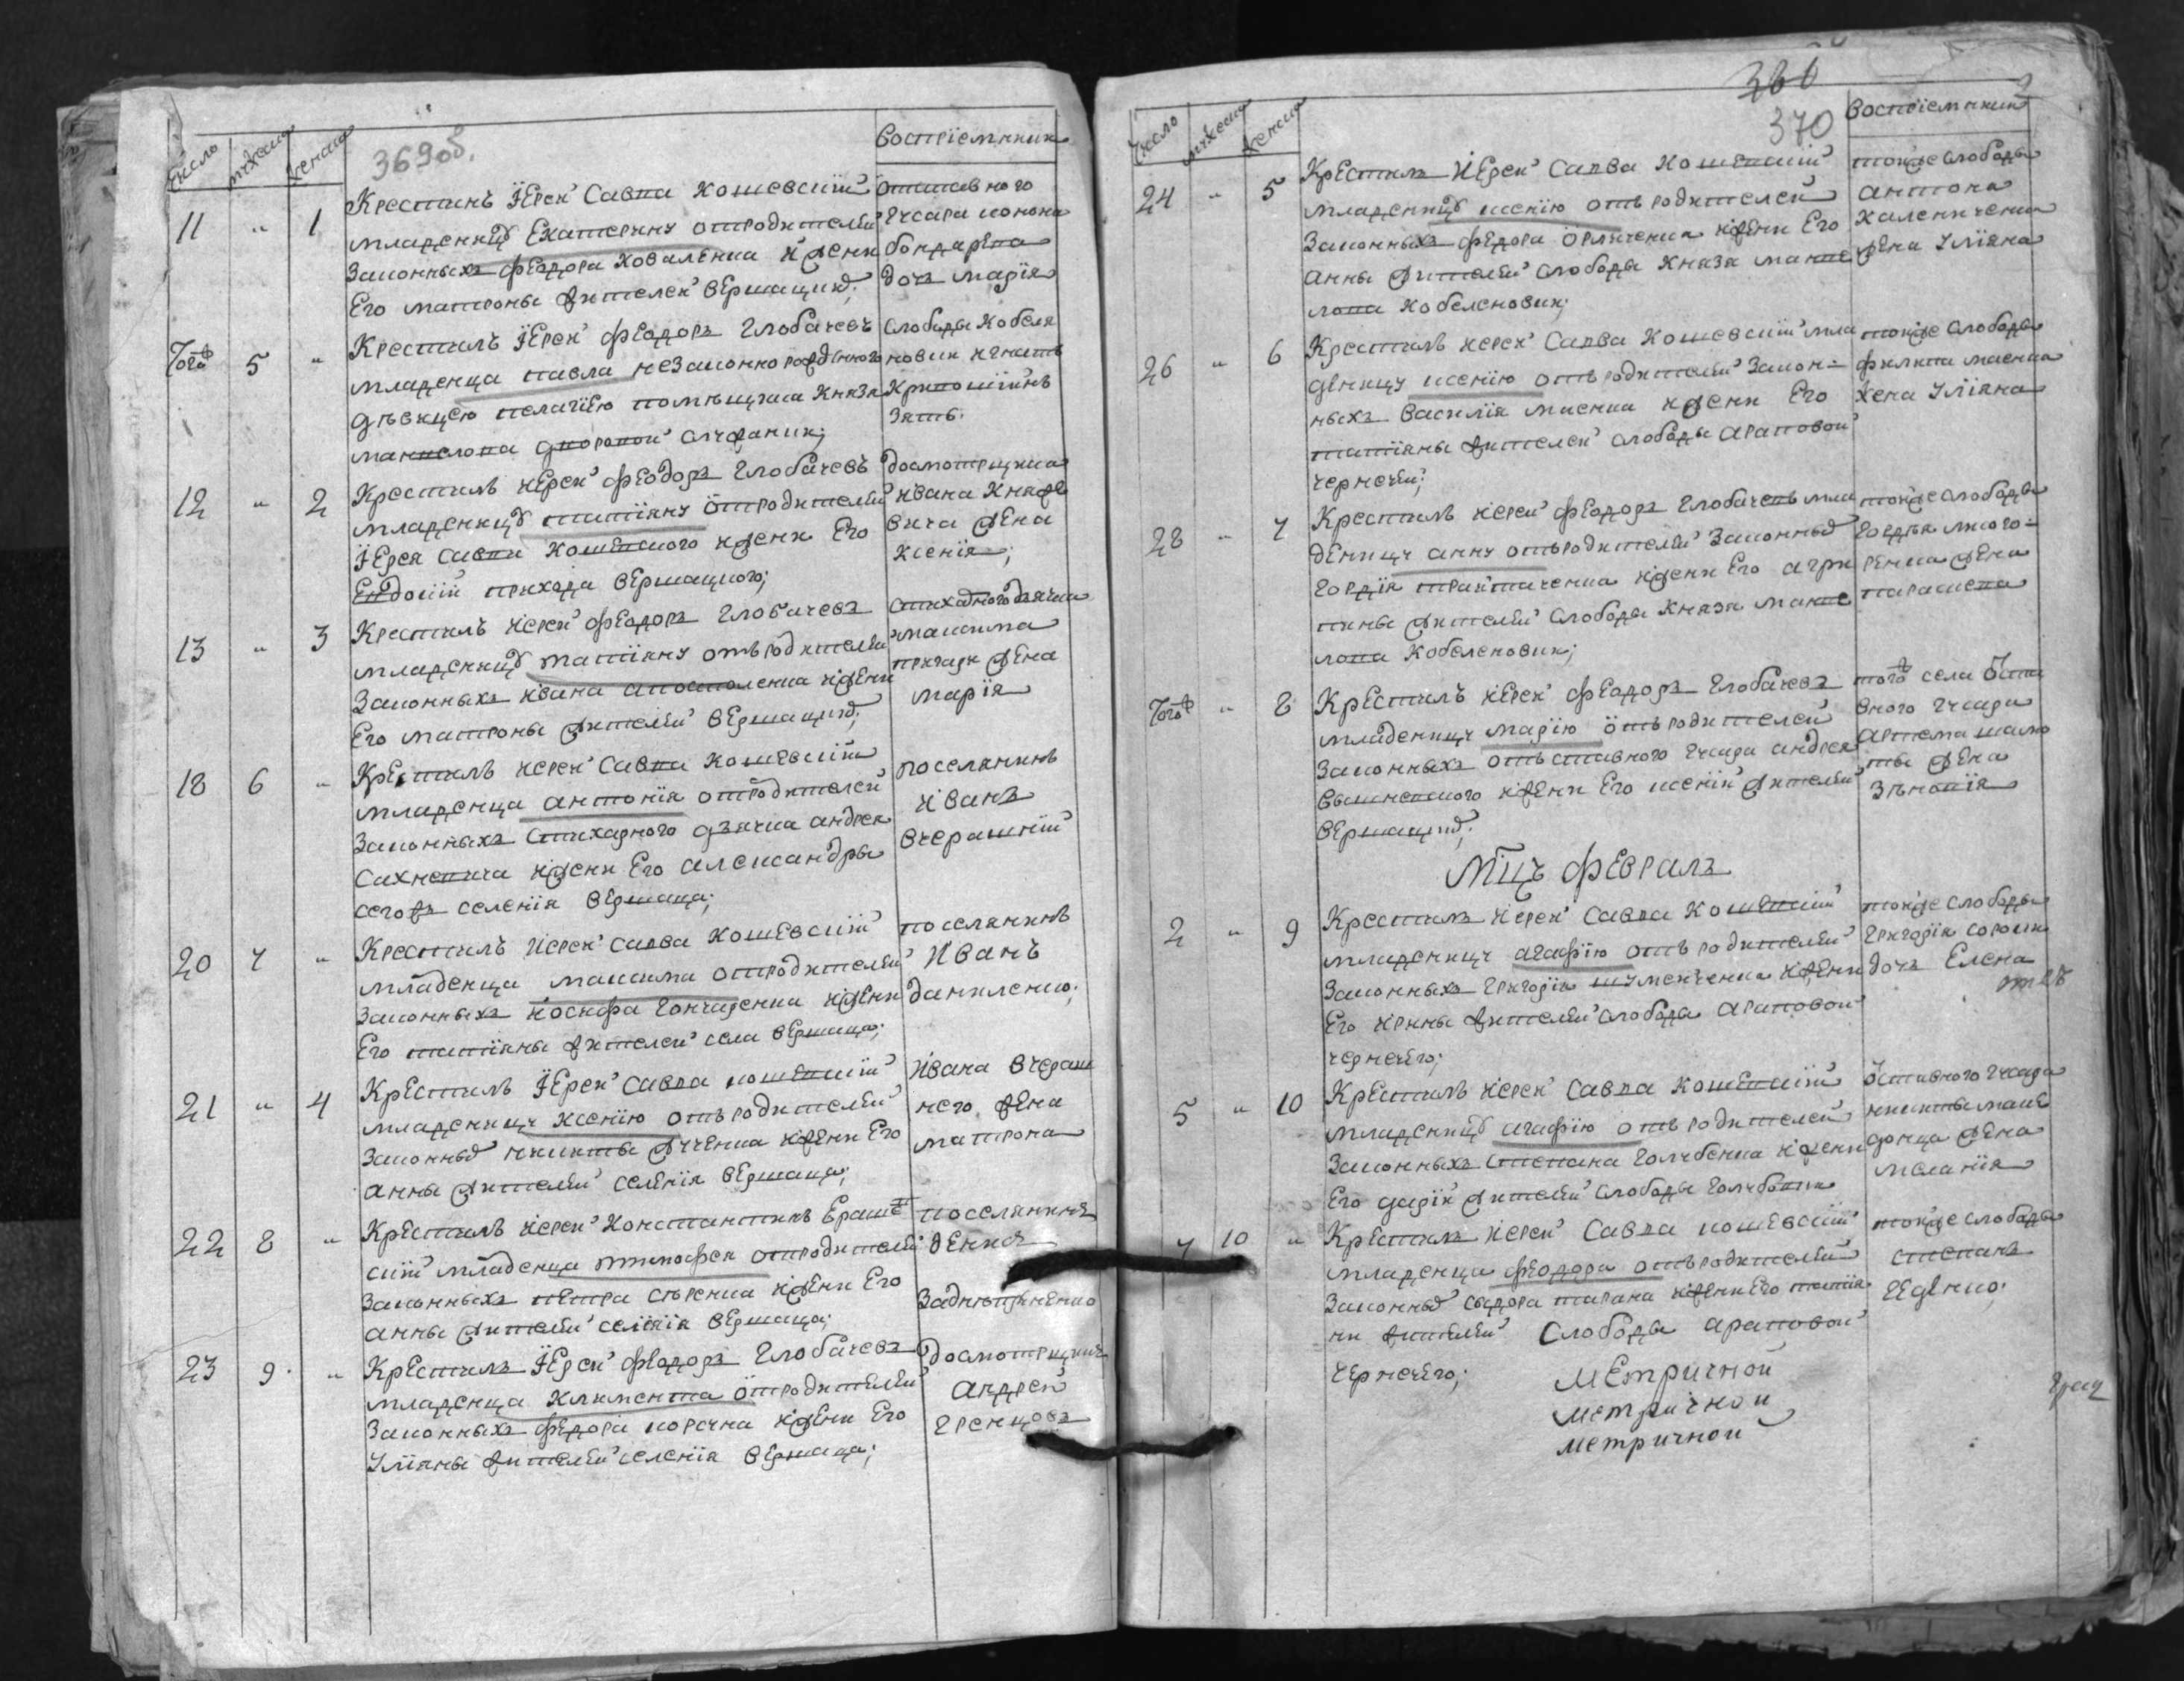 369об.
Число
мужеска
женска
Воспріемники
11 " 1
Крестилъ Іерей Савва Кошевскій
младеницу Екатерину отродителей
законныхъ Феодора Коваленка и жени
Его матроны жителей Вершацкихъ;
отставного
гусара
бондарева
дочь марія
Того ж 5 "
Крестилъ Іерей Феодоръ Глобачевъ
младенца павла незаконнорожденного
дѣвицею пелагіею помѣщика Князя
дворовой служанки;
слободы Кобеля
новки игнатъ
зять.
12 " 2
Крестилъ иерей Феодоръ Глобачевъ
младеницу татіяну отродителей
Іерея савви Кошевского и жени Его
Евдокіи прихода вершацкого;
досмотрщика
ивана Княже
вича жена
Ксенія;
13 " 3
Крестилъ иерей Феодоръ Глобачевъ
младеницу татіяну отъродителей
законныхъ ивана апостоленка и жени
Его матроны жителей вершацкихъ;
стихарного дячка
максима
жена
марія
18 6 "
Крестилъ иерей Савва Кошевскій
младенца антонія отродителей
законныхъ стихарного дьячка андрея
Сахневича и жени Его александры
сегожъ селенія вершаца;
поселянинъ
иванъ
вчерашній
20 7 "
Крестилъ иерей савва Кошевскій
младенца максима отродителей
законныхъ иосифа Гончаренка и жени
Его татіяны жителей села вершаца;
поселянинъ
Иванъ
даниленко;
21 " 4
Крестилъ Іерей савва кошевскій
младеницу Ксенію отъродителей
законныхъ никиты и жени Его
анны жителей селенія вершаца;
ивана вчераш
него жена
матрона
22 8 "
Крестилъ иерей Константинъ
скій младенца тимофея отродителей
законныхъ петра сѣренка и жени Его
анны жителей селенія вершаца;
поселянинъ
23 9 "
Крестилъ Іерей Феодоръ Глобачевъ
младенца климента отродителей
законныхъ Федора и жени Его
Уліяны жителей селенія вершаца;
досмотрщикъ
андрей
366
370
Число
мужеска
женска
Воспріемники
24 " 5
Крестилъ Иерей Савва Кошевскій
младеницу ксенію отъ родителей
законныхъ Федора Орличенка и жени Его
анны жителей слободы Князя
Кобелековки;
тояже слободы
антона
Каленичена
жена Уліяна
26 " 6
Крестилъ иерей Савва Кошевскій мла
деницу ксенію отъ родителей закон=
ныхъ василія масика и жени Его
татіяны жителей слободы араповой
чернечей;
тояже слободы
филипа масика
жена Уліяна
28 " 7
Крестилъ иерей Феодоръ Глобачевъ мла
деницу анну отъродителей законныхъ
гордія и жени Его агри
пины жителей слободы Князя
Кобелековки;
тояже слободы
жена
параскева
Того ж " 8
Крестилъ иерей Феодоръ Глобачевъ
младеницу марію отъ родителей
законныхъ отъставного гусара андрея
и жени Его ксеніи жителей
вершацкихъ;
того ж села Оста
вного гусара
артема
жена
зѣновія
Мцъ Февраль
2 " 9
Крестилъ иерей Савва Кошевскій
младеницу агафію отъ родителей
законныхъ григорія и жени
Его ирины жителей слободы араповой
чернечего;
тояже слободы
григорія сороки
дочь Елена
5 " 10
Крестилъ иерей Савва Кошевскій
младеницу агафію отъ родителей
законныхъ степана голубенка и жени
Его дарій жителей слободы
Оставного гусара
никиты маке
донца жена
меланія
7 10 "
Крестилъ иерей Савва кошевскій
младенца феодора отъродителей
законныхъ сидора тарана и жени Его татія
ни жителей Слободы араповой
чернечего;
тояже слободы
степанъ
Метричной
метричной
метричной